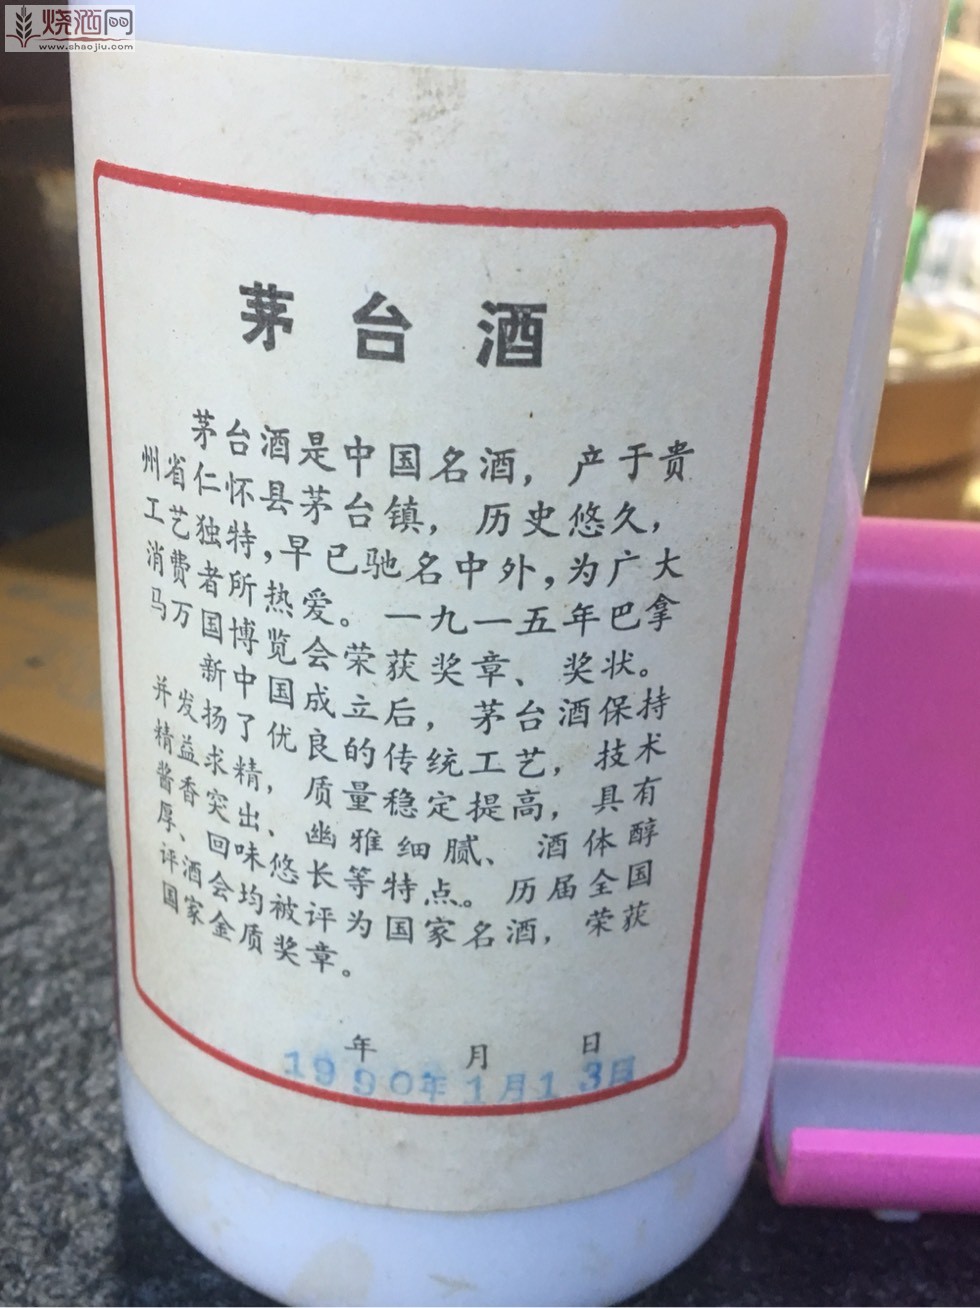 烧酒网
www.shaojiu.com
茅台酒
茅台酒是中国名酒，产于贵
州省仁怀县茅台镇，历史悠久，
工艺独特，早已驰名中外，为广大
消费者所热爱。一九一五年巴拿
马万国博览会荣获奖章、奖状。
新中国成立后，茅台酒保持
并发扬了优良的传统工艺，技术
精益求精，质量稳定提高，具有
酱香突出、幽雅细腻、酒体醇
厚、回味悠长等特点。历届全国
评酒会均被评为国家名酒，荣获
国家金质奖章。
年 月 日
1990年1月13日